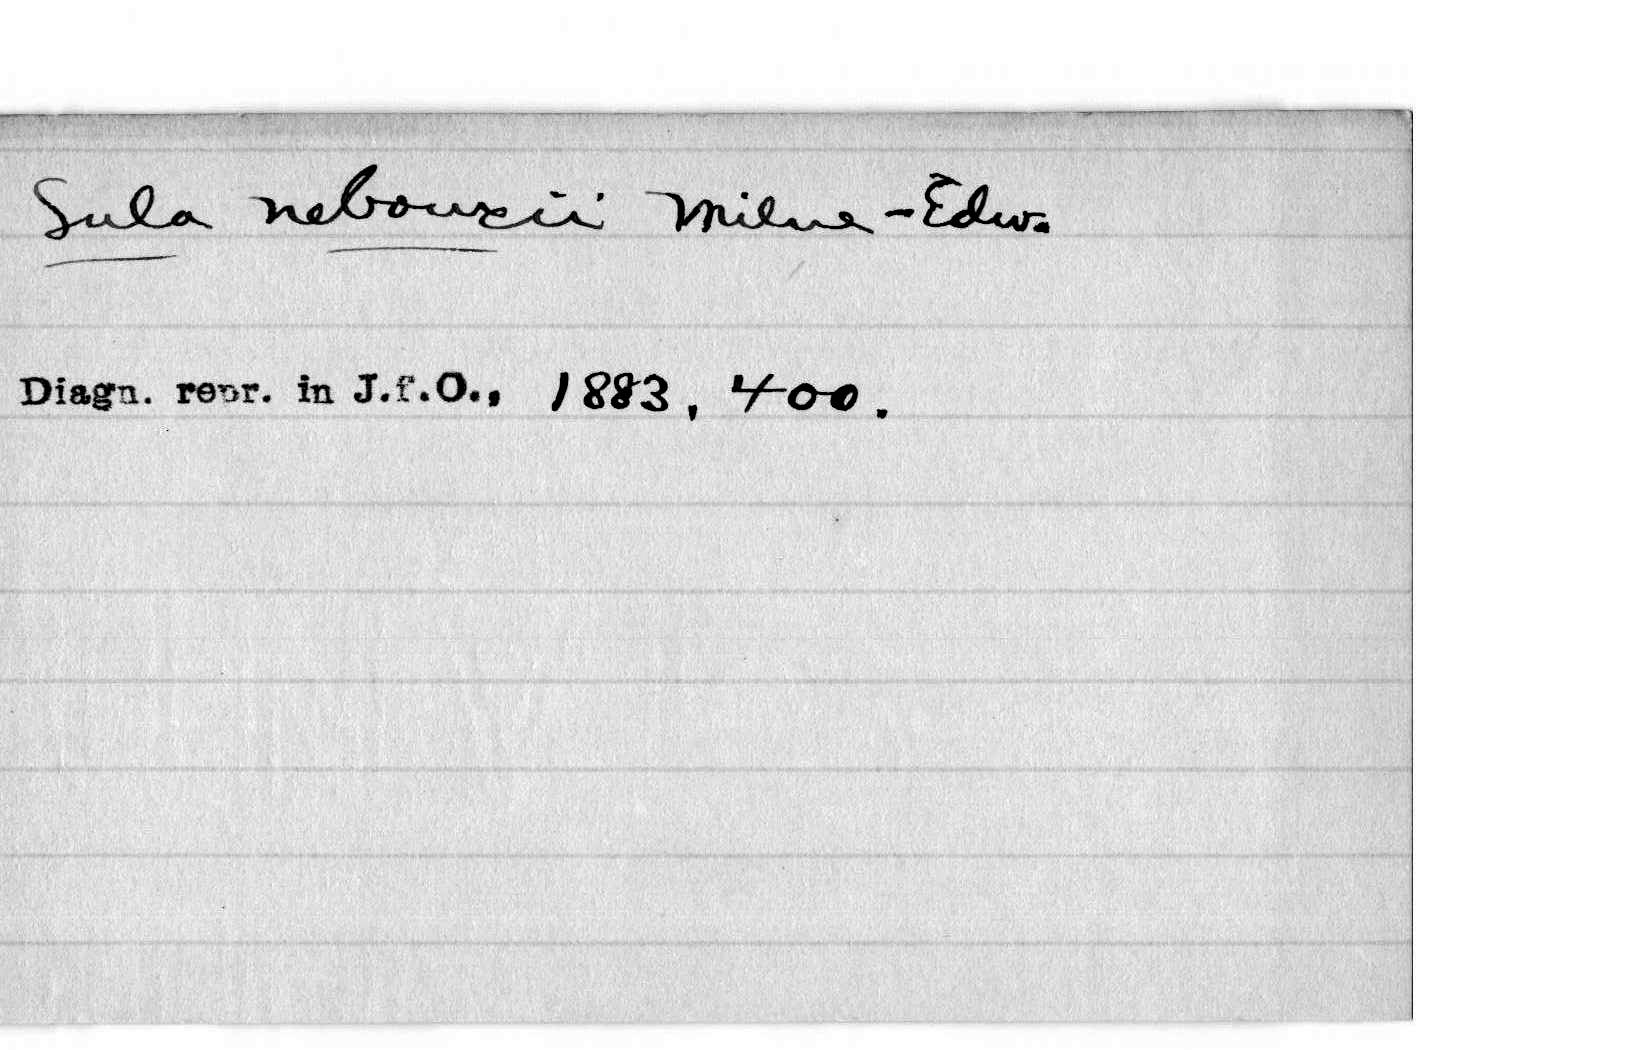 Sula nebouxii Milne-Edw.
Diagn. repr. in J.f.O., 1883, 400.